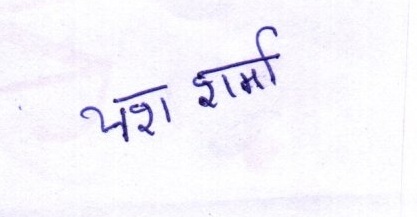 यश शर्मा